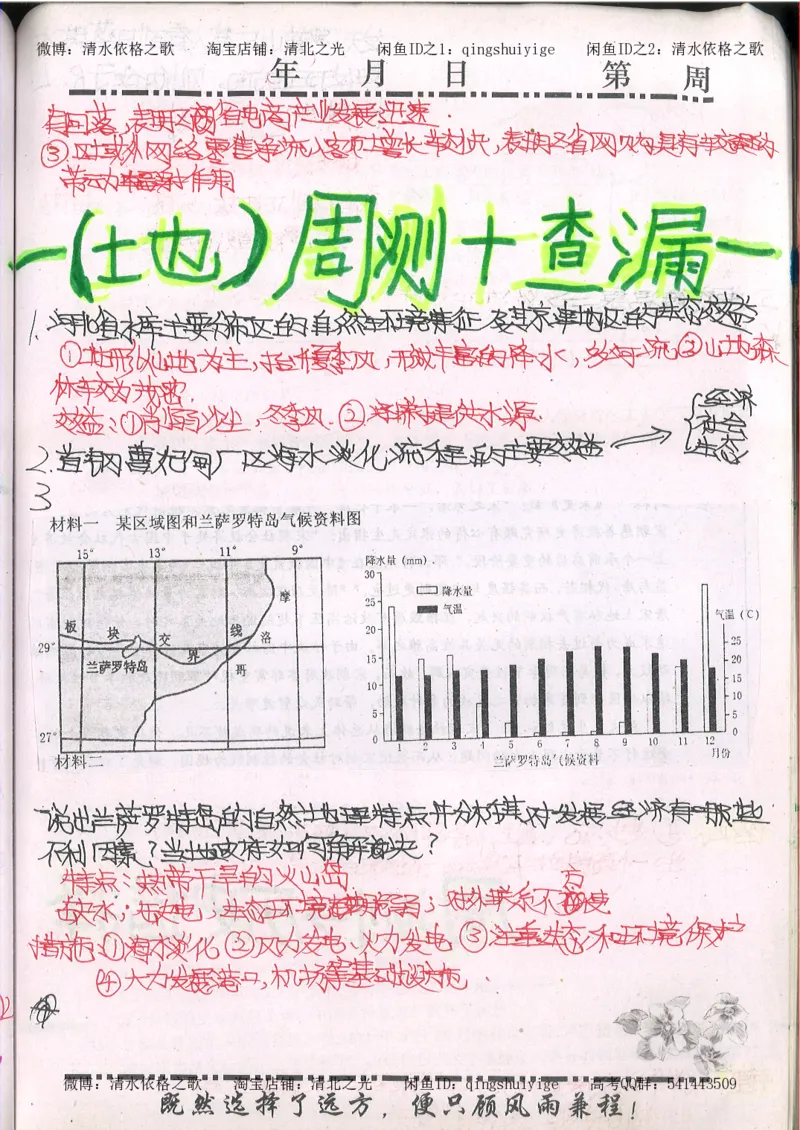 微博：清水依格之歌 淘宝店铺：清北之光 闲鱼ID之1：qingshuiyige 闲鱼ID之2：清水依格之歌
年 月 日 第 周
有回落，表明区商省电商产业发展迅速．
带动 作用
一(土也)周测十查漏一
1. 水库主要分布区的自然环境特征及其 地区的生态效益
①地形以山地为主，抬 夏季风，形成丰富的降水，多河流②山地森
林 茂密
效益：①削弱沙尘，冬季风．② 提供水源．
经济
社会
生态
2. 首钢曹妃甸厂区海水淡化流程 的主要效益
3
材料一 某区域图和兰萨罗特岛气候资料图
15° 13° 11° 9°
降水量（mm）
30 25 20 15 10 5 0
降水量
气温
气温（℃）
25 20 15 10 5 0
摩 洛 哥
板 块 交 界 线
29°
兰萨罗特岛
27°
1 2 3 4 5 6 7 8 9 10 11 12
月份
兰萨罗特岛气候资料
材料二
说出兰萨罗特岛的自然地理特点并分析其对发展经济有一哪些
不利因素？当地政府如何解决？
特点：热带干旱的火山岛
缺水；缺电；生态环境脆弱；对外联系不方便
措施：①海水淡化②风力发电、火力发电③注重生态和环境保护
④大力发展港口，机场等基础设施．
微博：清水依格之歌 淘宝店铺：清北之光 闲鱼ID：qingshuiyige 高考QQ群：541443509
既然选择了远方，便只顾风雨兼程！